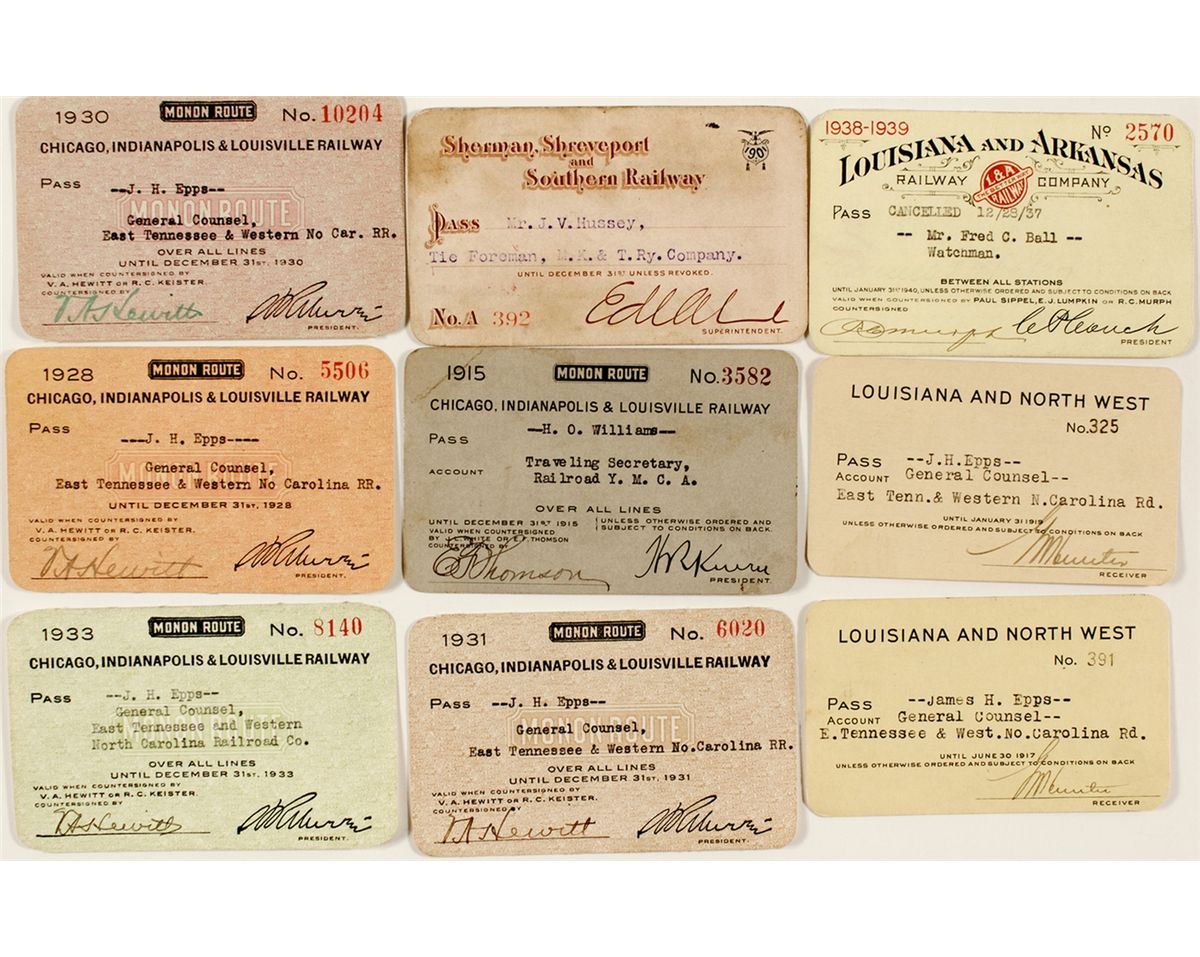 1930 MONON ROUTE No. 10204
CHICAGO, INDIANAPOLIS & LOUISVILLE RAILWAY
PASS --J. H. Epps--
MONON ROUTE
General Counsel,
East Tennessee & Western No Car. RR.
OVER ALL LINES
UNTIL DECEMBER 31ST, 1930
VALID WHEN COUNTERSIGNED BY
V. A. HEWITT OR R. C. KEISTER.
COUNTERSIGNED BY
V A Hewitt
PRESIDENT.
Sherman, Shreveport
and
Southern Railway
1901
PASS Mr. J. V. Hussey,
Tie Foreman, M. K. & T. Ry. Company.
UNTIL DECEMBER 31ST UNLESS REVOKED.
No. A 392
SUPERINTENDENT.
1938-1939 No 2570
LOUISIANA AND ARKANSAS
RAILWAY COMPANY
L&A
THE BETTER WAY
RAILWAY
PASS CANCELLED 12/28/37
-- Mr. Fred C. Ball --
Watchman.
BETWEEN ALL STATIONS
UNTIL JANUARY 31ST 1940, UNLESS OTHERWISE ORDERED AND SUBJECT TO CONDITIONS ON BACK
VALID WHEN COUNTERSIGNED BY PAUL SIPPEL, E. J. LUMPKIN OR R. C. MURPH
COUNTERSIGNED
PRESIDENT
1928 MONON ROUTE No. 5506
CHICAGO, INDIANAPOLIS & LOUISVILLE RAILWAY
PASS
---J. H. Epps----
MONON ROUTE
General Counsel,
East Tennessee & Western No Carolina RR.
UNTIL DECEMBER 31ST, 1928
VALID WHEN COUNTERSIGNED BY
V. A. HEWITT OR R. C. KEISTER.
COUNTERSIGNED BY
V A Hewitt
PRESIDENT.
1915 MONON ROUTE No. 3582
CHICAGO, INDIANAPOLIS & LOUISVILLE RAILWAY
PASS --H. O. Williams--
ACCOUNT Traveling Secretary,
Railroad Y. M. C. A.
OVER ALL LINES
UNTIL DECEMBER 31ST 1915 UNLESS OTHERWISE ORDERED AND
VALID WHEN COUNTERSIGNED SUBJECT TO CONDITIONS ON BACK.
BY WHITE OR E. F. THOMSON
COUNTERSIGNED BY
E F Thomson
PRESIDENT.
LOUISIANA AND NORTH WEST
No. 325
PASS --J.H.Epps--
ACCOUNT General Counsel--
East Tenn.& Western N.Carolina Rd.
UNTIL JANUARY 31 1919
UNLESS OTHERWISE ORDERED AND SUBJECT TO CONDITIONS ON BACK
RECEIVER
1933 MONON ROUTE No. 8140
CHICAGO, INDIANAPOLIS & LOUISVILLE RAILWAY
PASS --J. H. Epps--
General Counsel,
MONON ROUTE
East Tennessee and Western
North Carolina Railroad Co.
OVER ALL LINES
UNTIL DECEMBER 31ST, 1933
VALID WHEN COUNTERSIGNED BY
V. A. HEWITT OR R. C. KEISTER.
COUNTERSIGNED BY
V A Hewitt
PRESIDENT.
1931 MONON ROUTE No. 6020
CHICAGO, INDIANAPOLIS & LOUISVILLE RAILWAY
PASS --J. H. Epps--
MONON ROUTE
General Counsel,
East Tennessee & Western No.Carolina RR.
OVER ALL LINES
UNTIL DECEMBER 31ST, 1931
VALID WHEN COUNTERSIGNED BY
V. A. HEWITT OR R. C. KEISTER.
COUNTERSIGNED BY
V A Hewitt
PRESIDENT.
LOUISIANA AND NORTH WEST
No. 391
PASS --James H. Epps--
ACCOUNT General Counsel--
E.Tennessee & West.No.Carolina Rd.
UNTIL JUNE 30 1917
UNLESS OTHERWISE ORDERED AND SUBJECT TO CONDITIONS ON BACK
RECEIVER